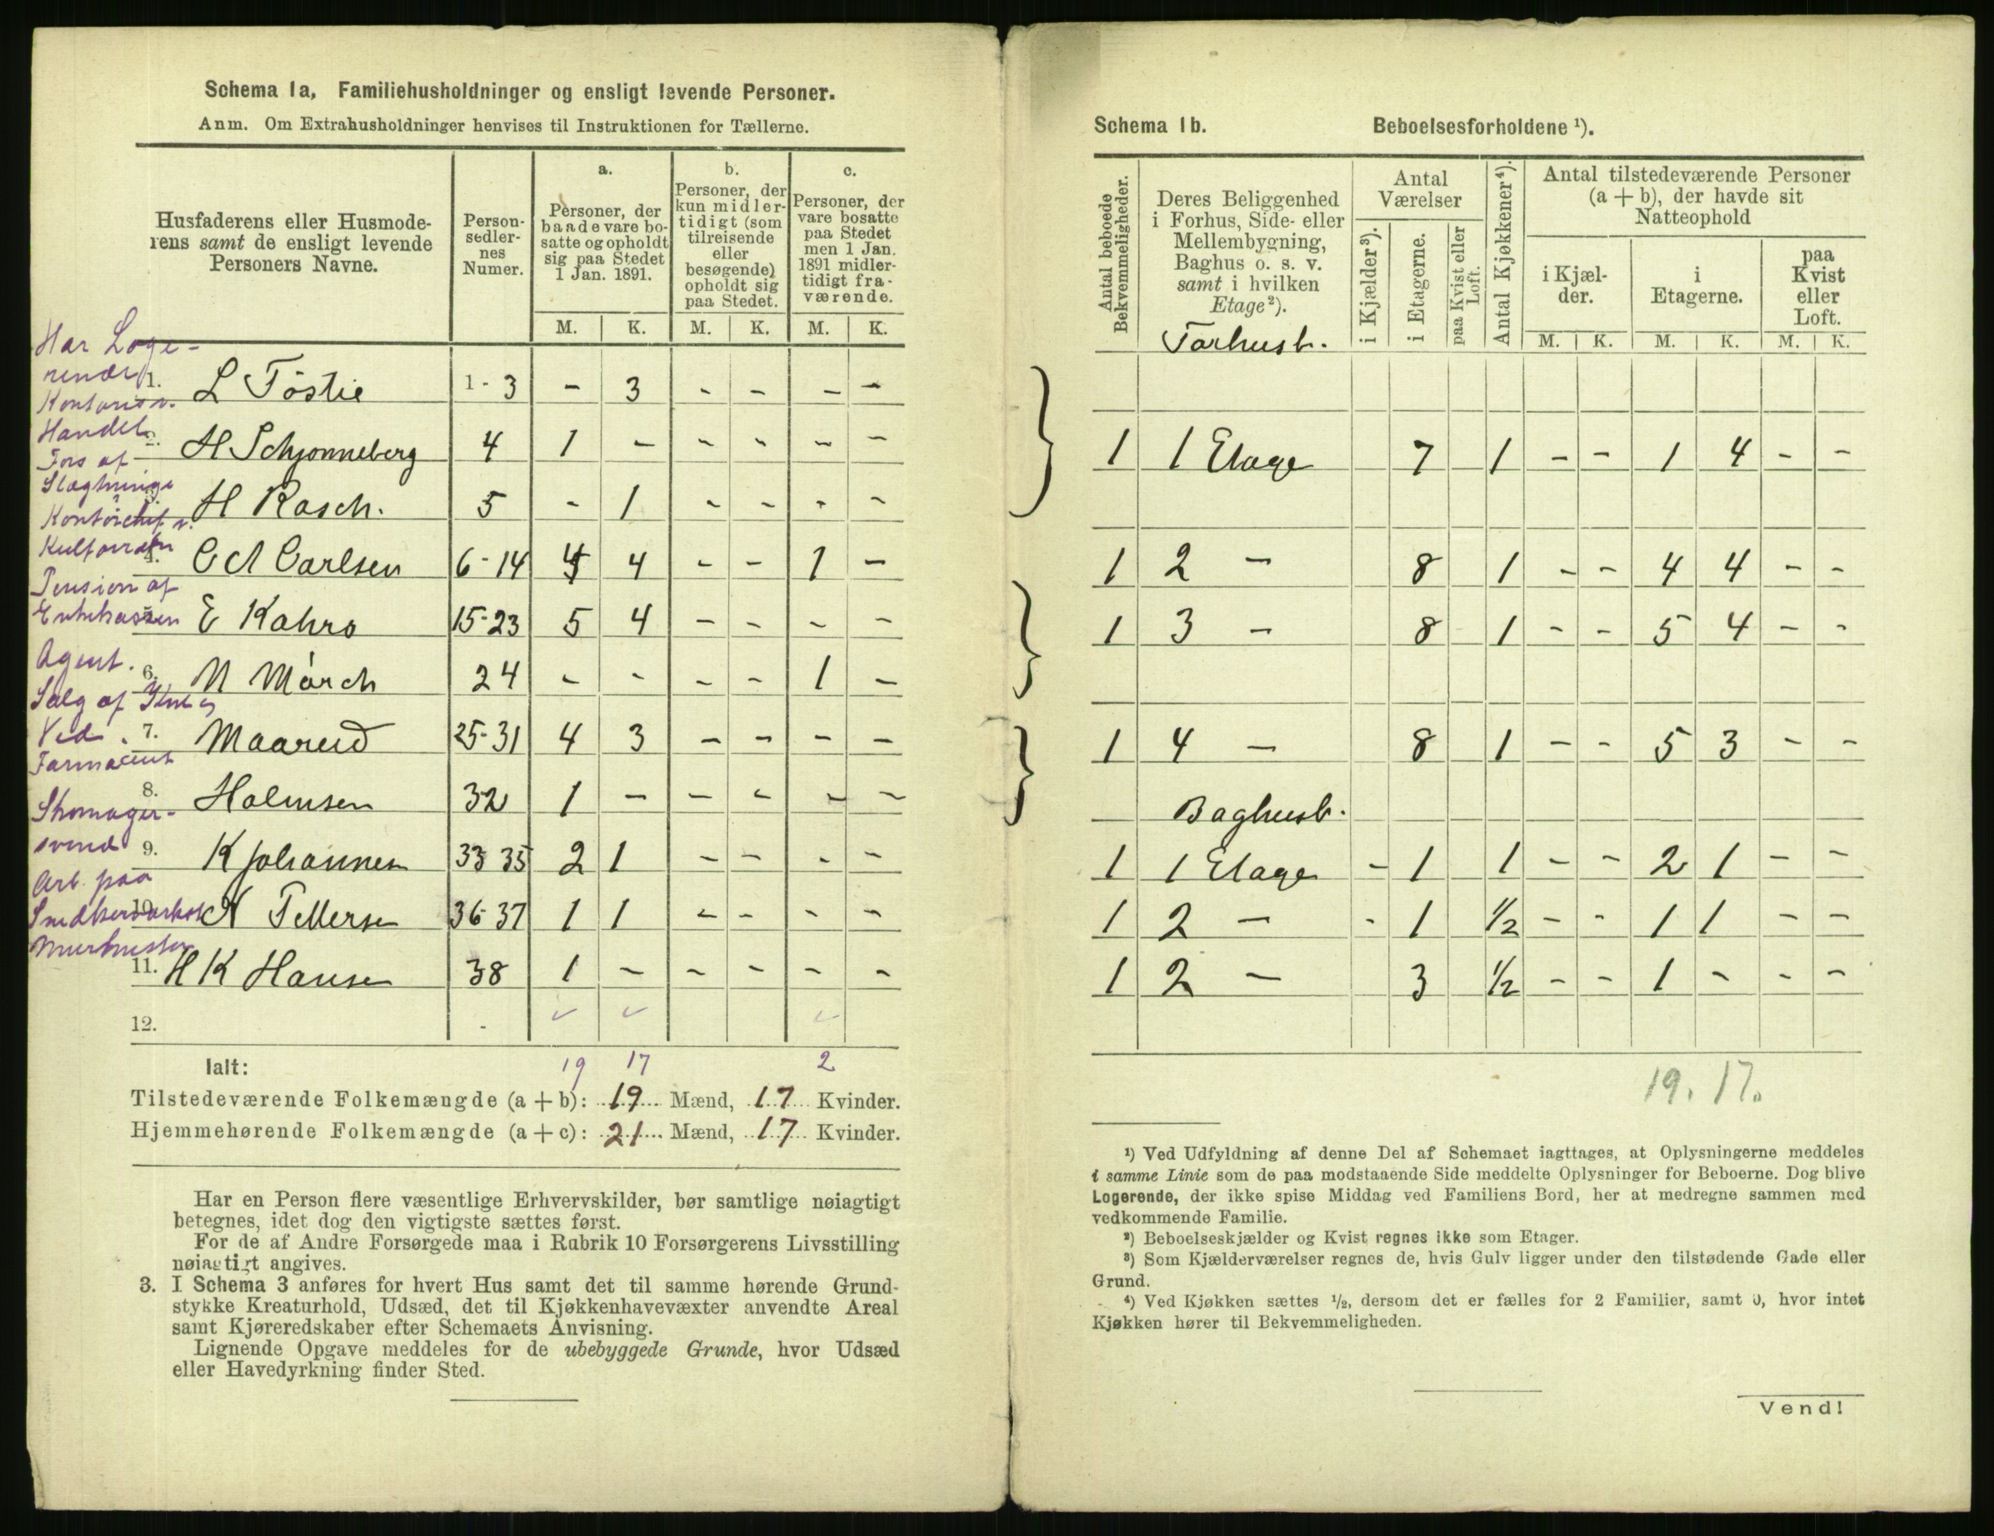 Schema 1a. Familiehusholdninger og ensligt levende Personer.
Anm. Om Extrahusholdninger henvises til Instruktionen for Tællerne.
Husfaderens eller Husmode-
rens samt de ensligt levende
Personers Navne.
Person-
sedler-
nes
Numer.
a.
Personer, der
baade vare bo-
satte og opholdt
sig paa Stedet
1 Jan. 1891.
b.
Personer, der
kun midler-
tidigt (som
tilreisende
eller
besøgende)
opholdt sig
paa Stedet.
c.
Personer, der
vare bosatte
paa Stedet
men 1 Jan.
1891 midler-
tidigt fra-
værende.
M. K. M. K. M. K.
Har Loge-
rende
1. L Tostie 1-3 - 3 - - - -
Handel
2. H Schjonneberg 4 1 - - - - -
Fors af
Slægtninge
3. H Rasch. 5 - 1 - - - -
Kontorchef v.
4. C A Carlsen 6-14 4 4 - - 1 -
Pension af
Enkekassen
5. E Kahrs 15-23 5 4 - - - -
Agent.
6. N Mörch 24 - - - - 1 -
Salg af
Ved.
7. Maarud 25-31 4 3 - - - -
Farmaceut
8. Holmsen 32 1 - - - - -
Skomager-
svend
9. K Johannesen 33 35 2 1 - - - -
Arb. paa
10. N Pettersen 36-37 1 1 - - - -
Murmester
11. H K Hansen 38 1 - - - - -
12.
Ialt: 19 17 2
Tilstedeværende Folkemængde (a + b): 19 Mænd, 17 Kvinder.
Hjemmehørende Folkemængde (a + c): 21 Mænd, 17 Kvinder.
Har en Person flere væsentlige Erhvervskilder, bør samtlige nøiagtigt
betegnes, idet dog den vigtigste sættes først.
For de af Andre Forsørgede maa i Rubrik 10 Forsørgerens Livsstilling
nøiagtigt angives.
3. I Schema 3 anføres for hvert Hus samt det til samme hørende Grund-
stykke Kreaturhold, Udsæd, det til Kjøkkenhavevæxter anvendte Areal
samt Kjøreredskaber efter Schemaets Anvisning.
Lignende Opgave meddeles for de ubebyggede Grunde, hvor Udsæd
eller Havedyrkning finder Sted.
Schema 1b. Beboelsesforholdene ¹).
Antal beboede
Bekvemmeligheder.
Deres Beliggenhed
i Forhus, Side- eller
Mellembygning,
Baghus o. s. v.
samt i hvilken
Etage ²).
Antal
Værelser
i Kjælder ³).
i Etagerne.
paa Kvist eller
Loft.
Antal Kjøkkener ⁴).
Antal tilstedeværende Personer
(a + b), der havde sit
Natteophold
i Kjæl-
der.
i
Etagerne.
paa
Kvist
eller
Loft.
M. K. M. K. M. K.
Forhusb.
1 1 Etage 7 1 - - 1 4 - -
1 2 - 8 1 - - 4 4 - -
1 3 - 8 1 - - 5 4 - -
1 4 - 8 1 - - 5 3 - -
Baghusb.
1 1 Etage - 1 1 - - 2 1 - -
1 2 - - 1 1/2 - - 1 1 - -
1 2 - 3 1/2 - - 1 - - -
19. 17.
¹) Ved Udfyldning af denne Del af Schemaet iagttages, at Oplysningerne meddeles
i samme Linie som de paa modstaaende Side meddelte Oplysninger for Beboerne. Dog blive
Logerende, der ikke spise Middag ved Familiens Bord, her at medregne sammen med
vedkommende Familie.
²) Beboelseskjælder og Kvist regnes ikke som Etager.
³) Som Kjælderværelser regnes de, hvis Gulv ligger under den tilstødende Gade eller
Grund.
⁴) Ved Kjøkken sættes 1/2, dersom det er fælles for 2 Familier, samt 0, hvor intet
Kjøkken hører til Bekvemmeligheden.
Vend!